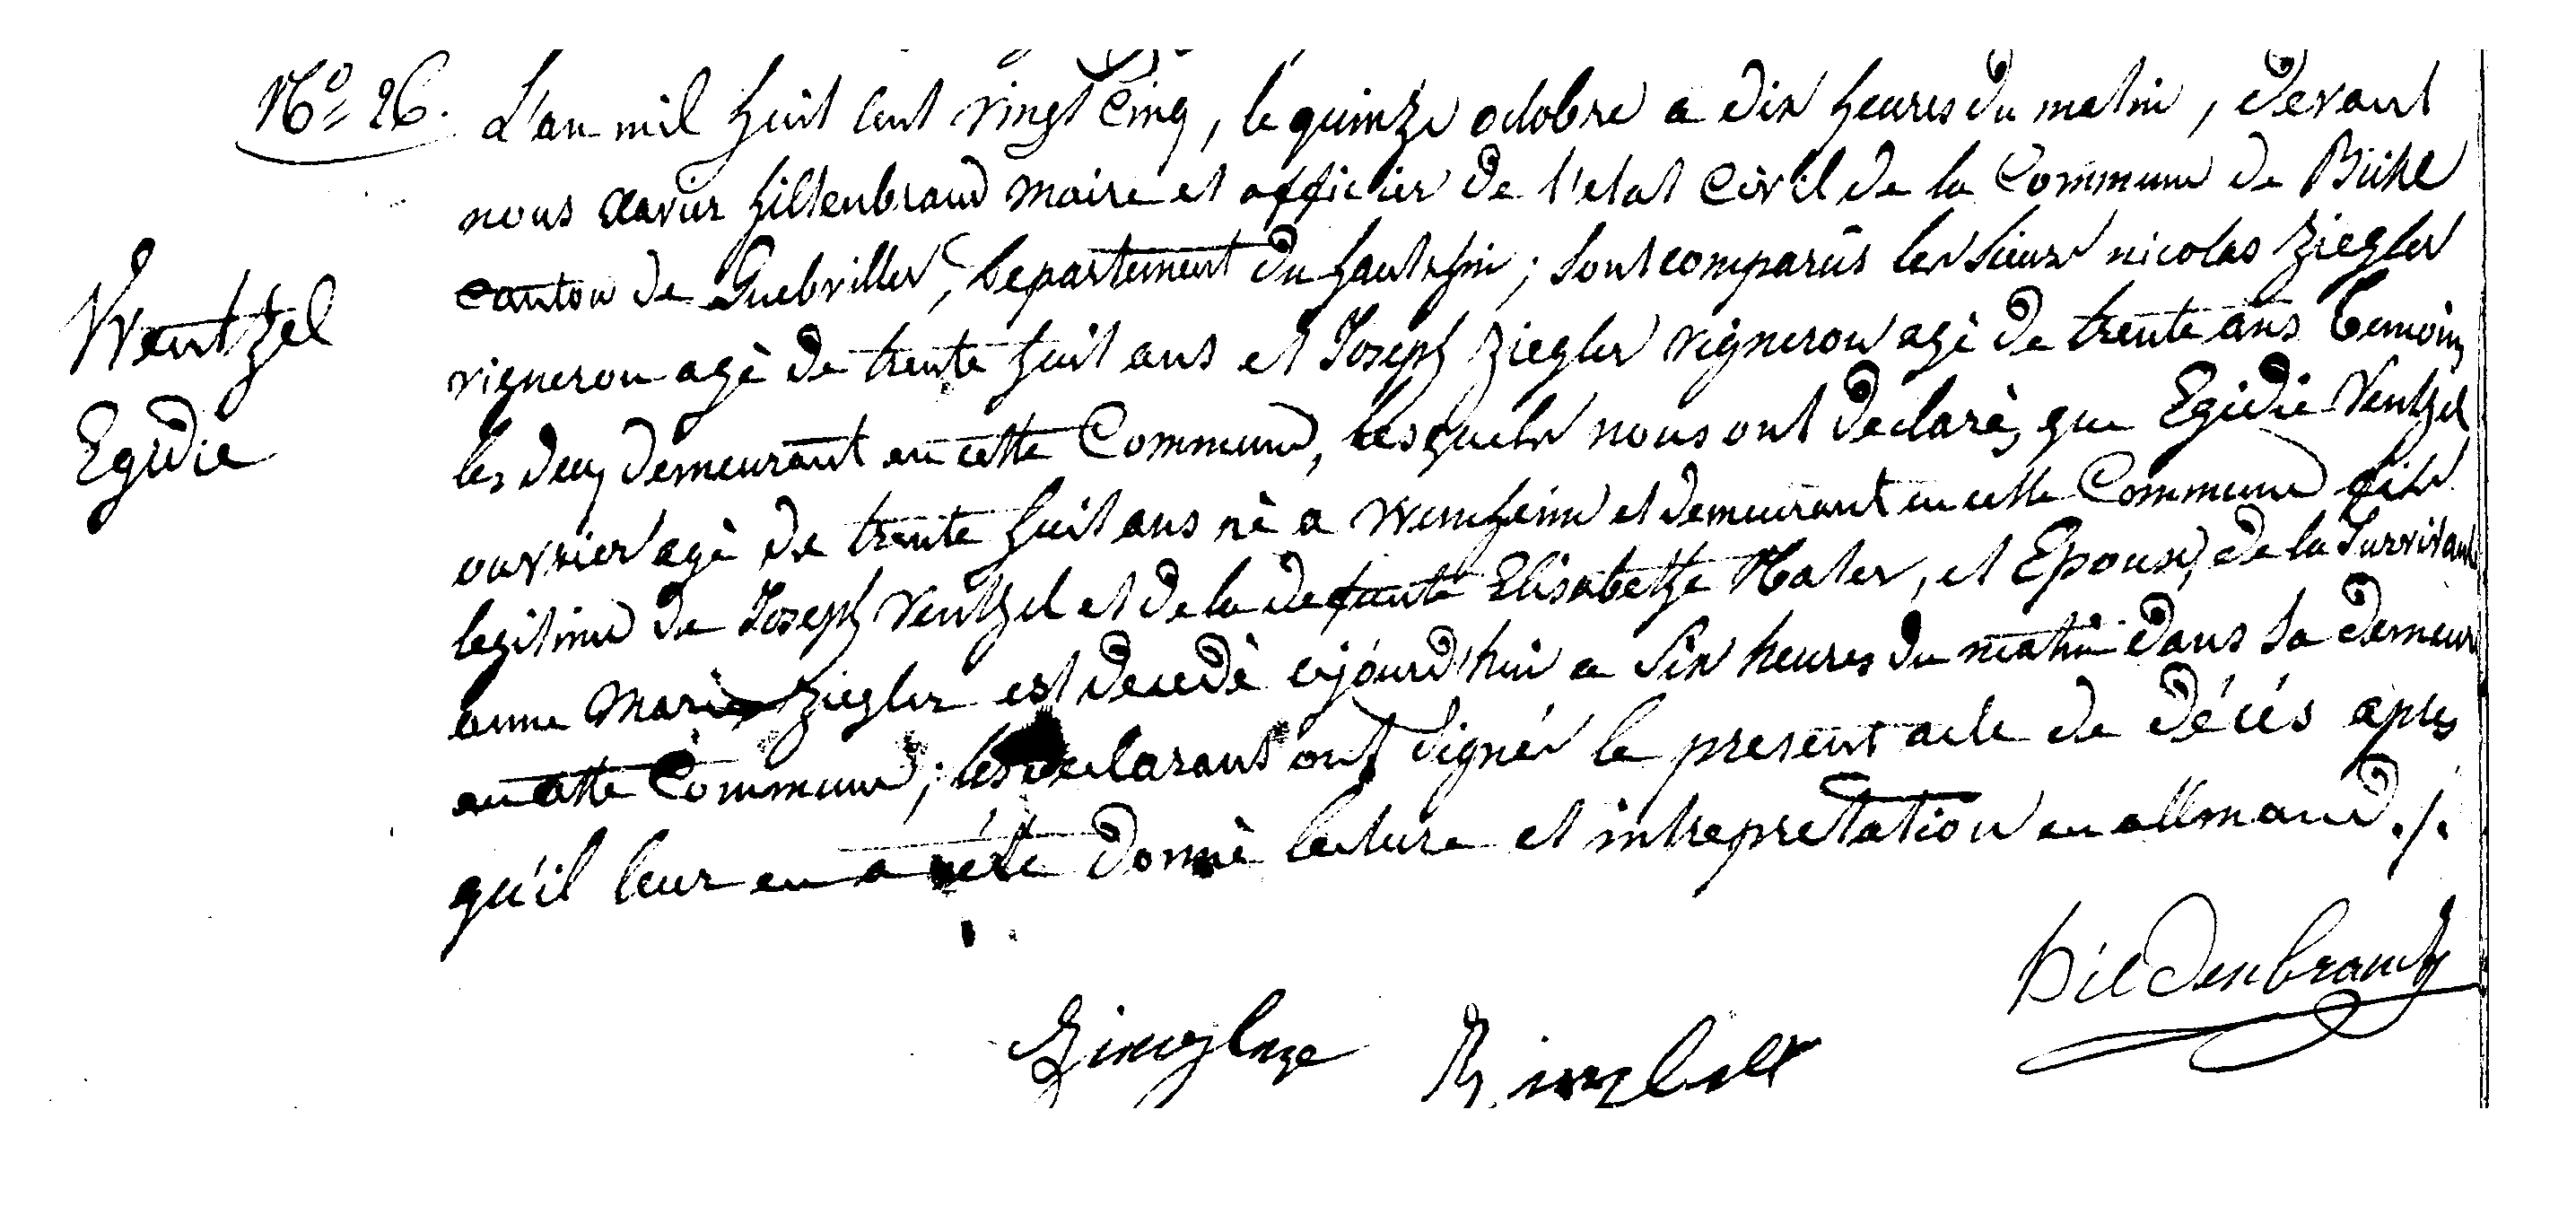 No 26.
Wentzel
Egidie
L'an mil huit cent vingt cinq, le quinze octobre a dix heures du matin, devant
nous Xavier hiltenbrand maire et officier de l'etat civil de la Commune de Bühl
canton de Guebviller, Departement du hautrhin; sont comparûs les sieurs nicolas Ziegler
vigneron agè de trente huit ans et Joseph Ziegler vigneron agè de trente ans temoins
les deux demeurant en cette Commune, lesquels nous ont declarè, que Egidie Ventzel
ouvrier agè de trente huit ans nè a et demeurant en cette Commune fils
legitime de Joseph Ventzel et de la defunte Elisabethe et Epoux, de la Survivante
anne Marie Ziegler est decedè ajourd'hui a Six heures du matin dans sa demeure
en cette Commune; les declarant ont signér le present acte de décés aprés
qu'il leur en a été donnè lecture et intrepretation en allmand ./.
Hildenbrand